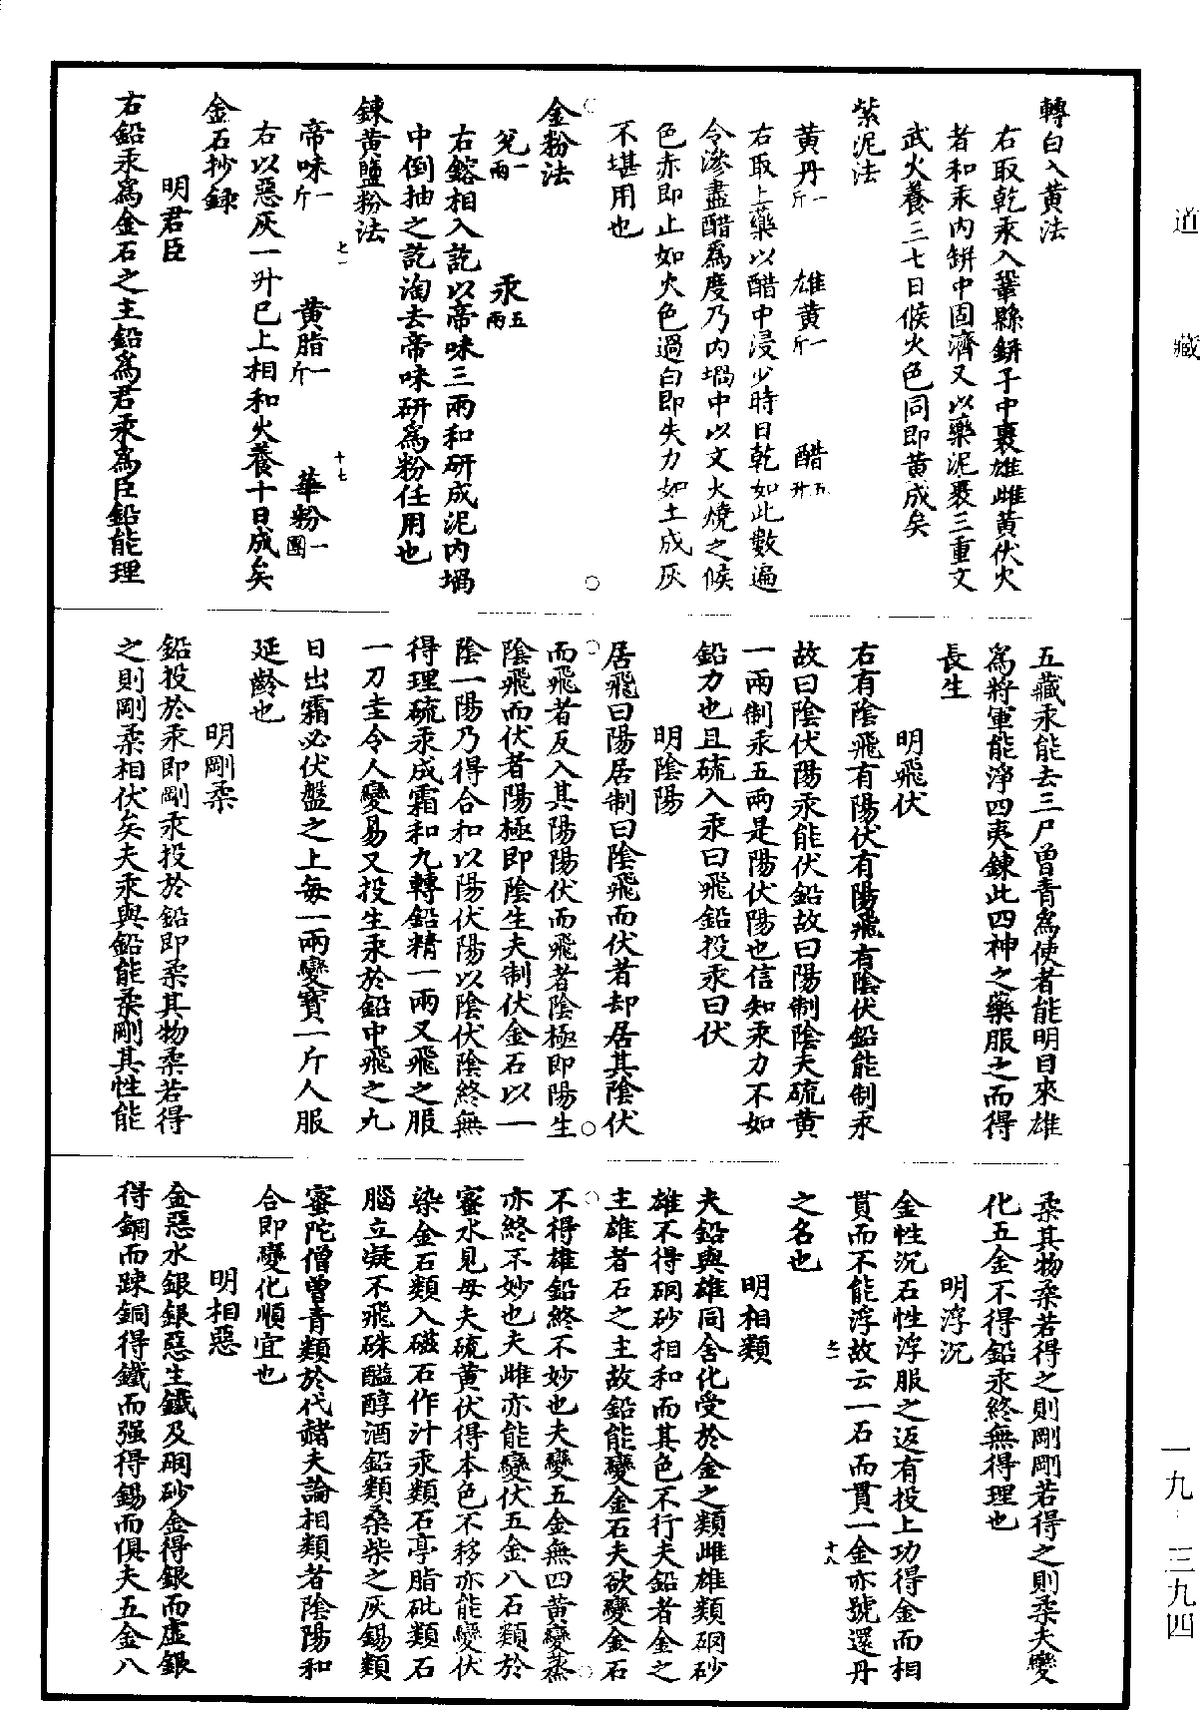 道藏
轉白入黃法
右取乾汞入鞏縣缾子中裹雄雌黃伏火
者和汞內缾中固濟又以藥泥裹三重文
武火養三七日候火色同即黃成矣
紫泥法
黃丹一斤 雄黃一斤 醋五升
右取上藥以醋中浸少時日乾如此數遍
令滲盡醋為度乃內堝中以文火燒之候
色赤即止如火色過白即失力如土成灰
不堪用也
金粉法
兊一兩 汞五兩
右鎔相入訖以帝味三兩和研成泥內堝
中倒抽之訖淘去帝味研為粉任用也
鍊黃鹽粉法
七一 十七
帝味一斤 黃脂一斤 華粉一團
右以惡灰一升已上相和火養十日成矣
金石抄録
明君臣
右鉛汞為金石之主鉛為君汞為臣鉛能理
五藏汞能去三尸曾青為使者能明目來雄
為將軍能淨四夷鍊此四神之藥服之而得
長生
明飛伏
右有陰飛有陽伏有陽飛有陰伏鉛能制汞
故曰陰伏陽汞能伏鉛故曰陽制陰夫硫黃
一兩制汞五兩是陽伏陽也信知汞力不如
鉛力也且硫入汞曰飛鉛投汞曰伏
明陰陽
居飛曰陽居制曰陰飛而伏者却居其陰伏
而飛者反入其陽陽伏而飛者陰極即陽生
陰飛而伏者陽極即陰生夫制伏金石以一
陰一陽乃得合和以陽伏陽以陰伏陰終無
得理硫汞成霜和九轉鉛精一兩又飛之服
一刀圭令人變易又投生汞於鉛中飛之九
日出霜必伏盤之上每一兩變寶一斤人服
延齡也
明剛柔
鉛投於汞即剛汞投於鉛即柔其物柔若得
之則剛柔相伏矣夫汞與鉛能柔剛其性能
柔其物柔若得之則剛剛若得之則柔夫變
化五金不得鉛汞終無得理也
明浮沉
金性沉石性浮服之返有投上功得金而相
貫而不能浮故云一石而貫一金亦號還丹
之名也
七一 十八
明相類
夫鉛與雄同舍化受於金之類雌雄類硇砂
雄不得硇砂相和而其色不行夫鉛者金之
主雄者石之主故鉛能變金石夫欲變金石
不得雄鉛終不妙也夫變五金無四黃變蒸
亦終不妙也夫雌亦能變伏五金八石類於
蜜水見母夫硫黃伏得本色不移亦能變伏
染金石類入磁石作汁汞類石亭脂砒類石
腦立凝不飛硃醯醇酒鉛類桑柴之灰錫類
蜜陀僧曾青類於代赭夫論相類者陰陽和
合即變化順宜也
明相惡
金惡水銀銀惡生鐵及硇砂金得銀而虛銀
得銅而踈銅得鐵而强得錫而俱夫五金八
一九·三九四